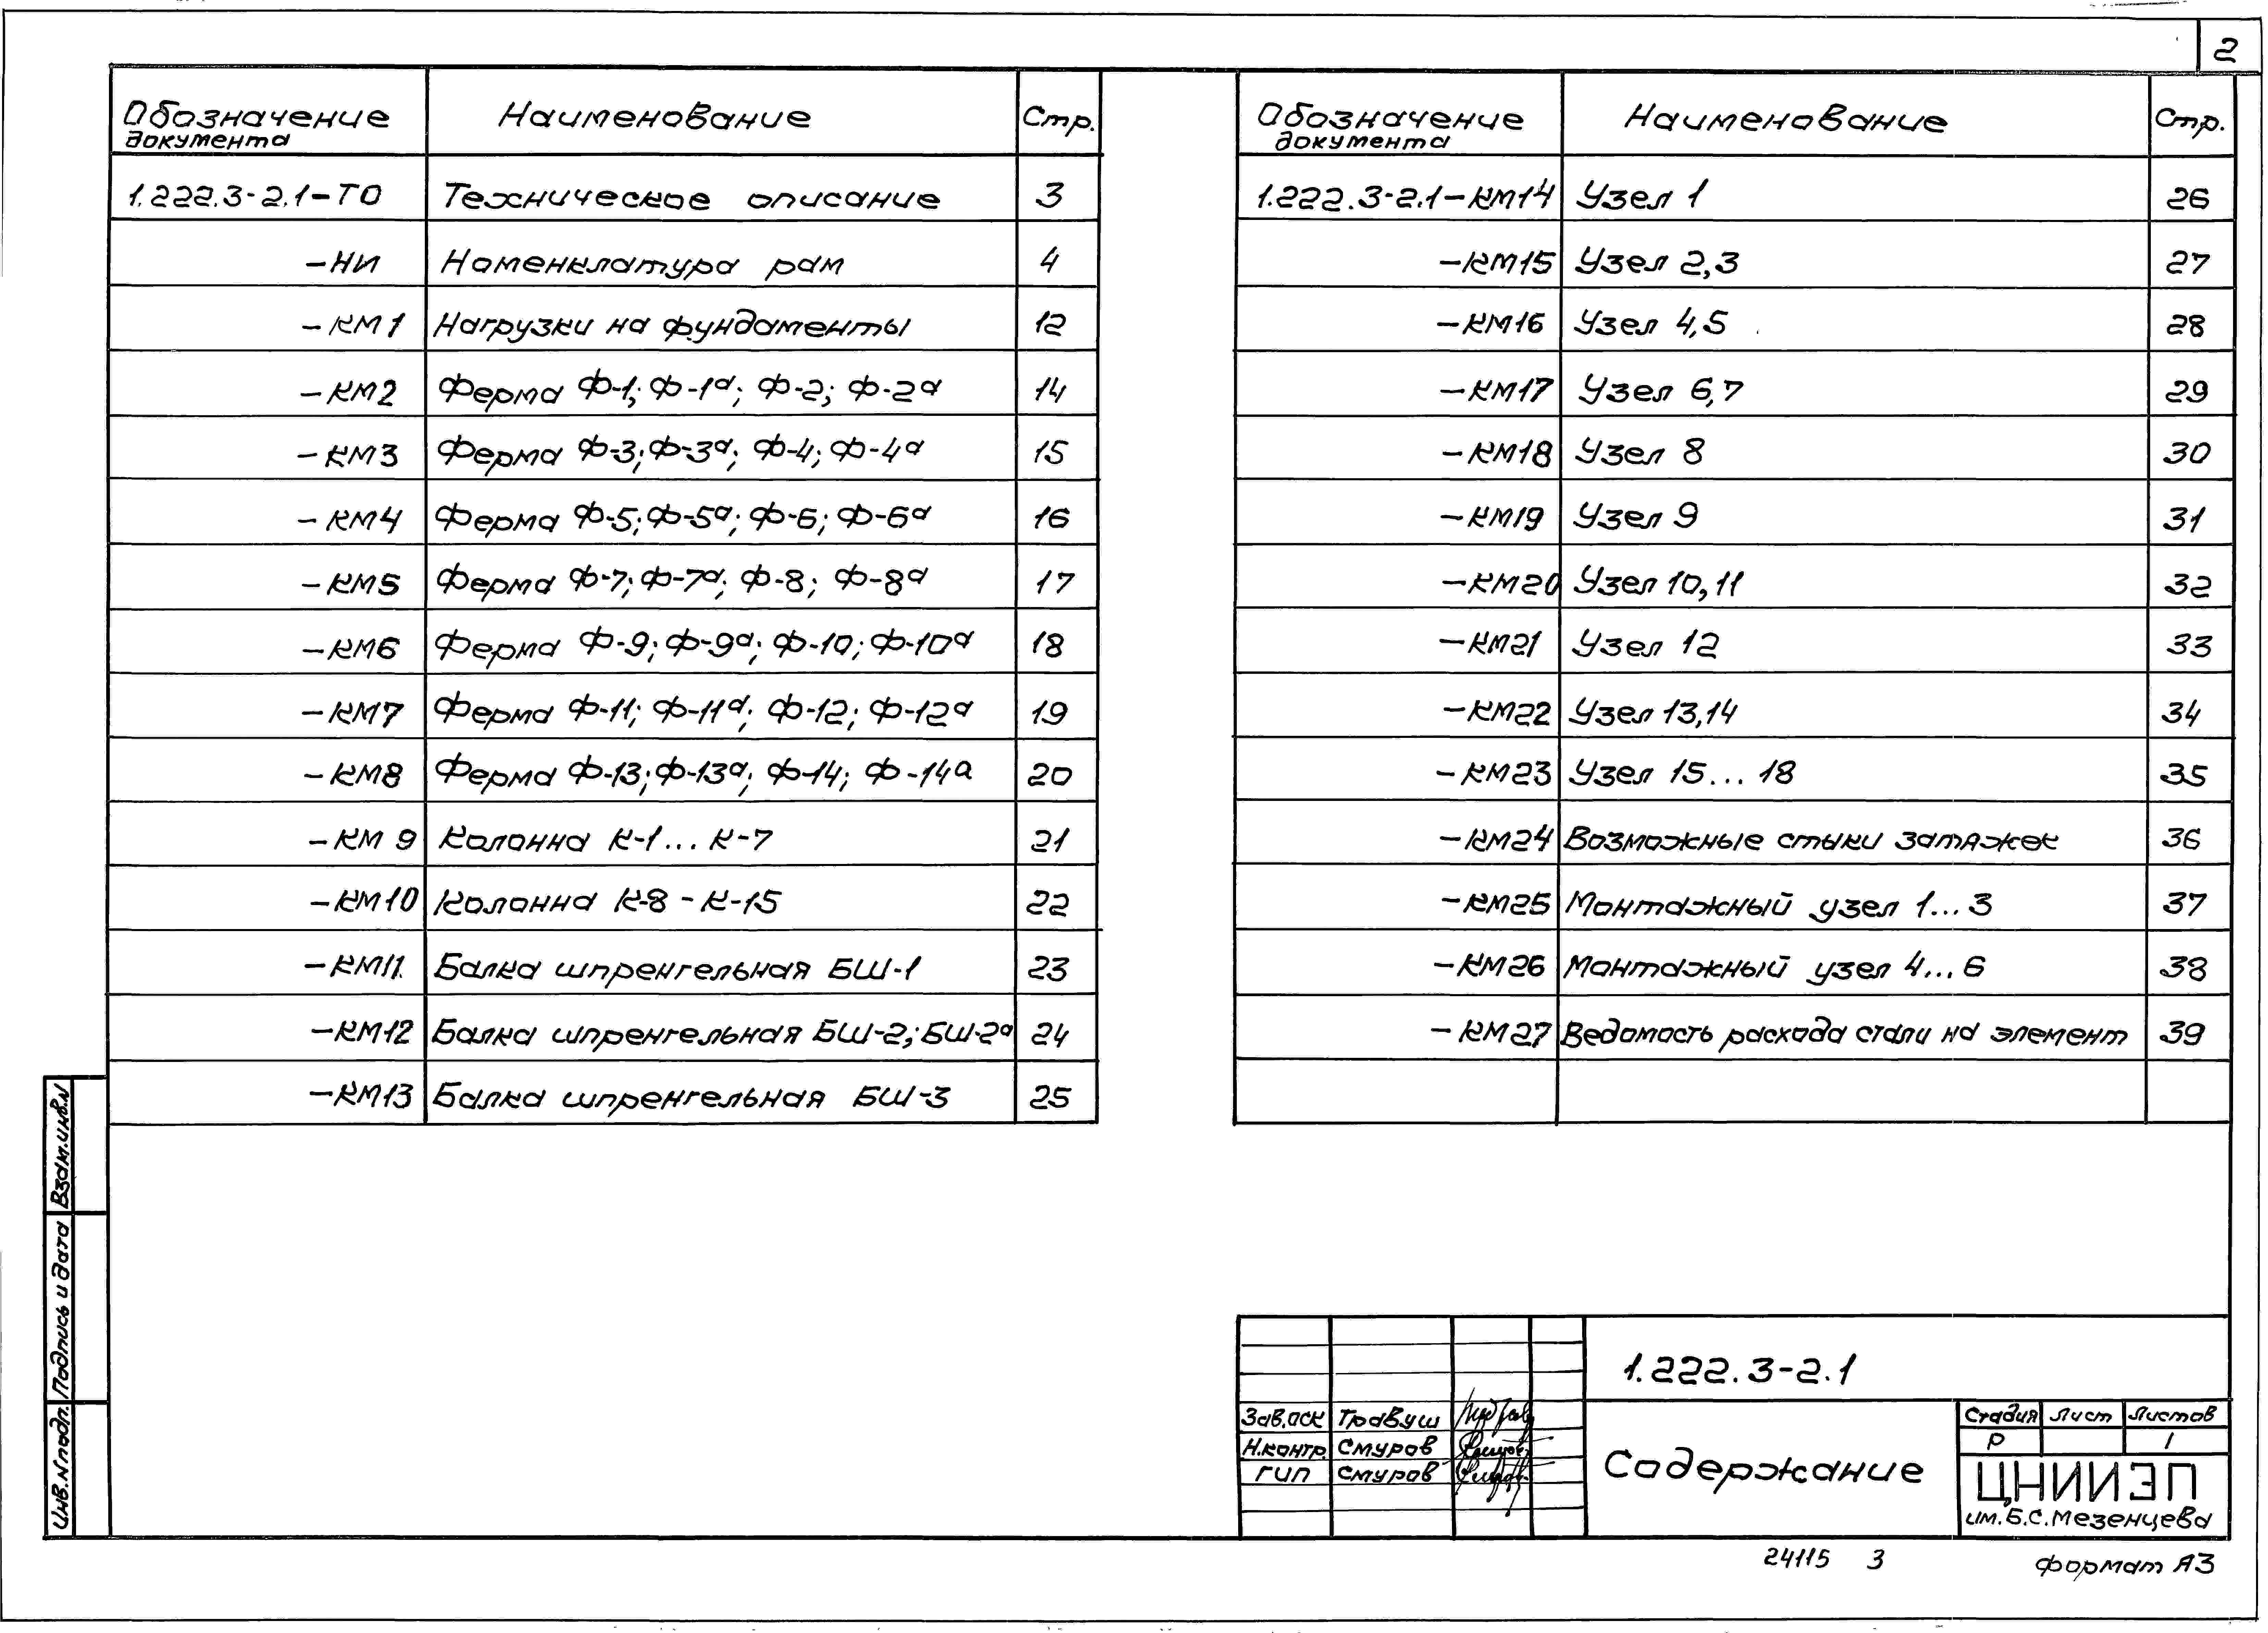 2
Обозначение документа Наименование Стр.
1.222.3-2.1-ТО Техническое описание 3
-НИ Номенклатура рам 4
-КМ1 Нагрузки на фундаменты 12
-КМ2 Ферма Ф-1; Ф-1а; Ф-2; Ф-2а 14
-КМ3 Ферма Ф-3; Ф-3а; Ф-4; Ф-4а 15
-КМ4 Ферма Ф-5; Ф-5а; Ф-6; Ф-6а 16
-КМ5 Ферма Ф-7; Ф-7а; Ф-8; Ф-8а 17
-КМ6 Ферма Ф-9; Ф-9а; Ф-10; Ф-10а 18
-КМ7 Ферма Ф-11; Ф-11а; Ф-12; Ф-12а 19
-КМ8 Ферма Ф-13; Ф-13а; Ф-14; Ф-14а 20
-КМ 9 Колонна К-1...К-7 21
-КМ10 Колонна К-8 - К-15 22
-КМ11. Балка шпренгельная БШ-1 23
-КМ12 Балка шпренгельная БШ-2; БШ-2а 24
-КМ13 Балка шпренгельная БШ-3 25
Обозначение документа Наименование Стр.
1.222.3-2.1-КМ14 Узел 1 26
-КМ15 Узел 2,3 27
-КМ16 Узел 4,5 28
-КМ17 Узел 6,7 29
-КМ18 Узел 8 30
-КМ19 Узел 9 31
-КМ20 Узел 10,11 32
-КМ21 Узел 12 33
-КМ22 Узел 13,14 34
-КМ23 Узел 15...18 35
-КМ24 Возможные стыки затяжек 36
-КМ25 Монтажный узел 1...3 37
-КМ26 Монтажный узел 4...6 38
-КМ27 Ведомость расхода стали на элемент 39
Взам.инв.N
Подпись и дата
Инв.N подл.
1.222.3-2.1
Зав.ОСК Травуш
Н.контр. Смуров
ГИП Смуров
Содержание
Стадия Лист Листов
Р 1
ЦНИИЭП
им.Б.С.Мезенцева
24115 3
Формат А3